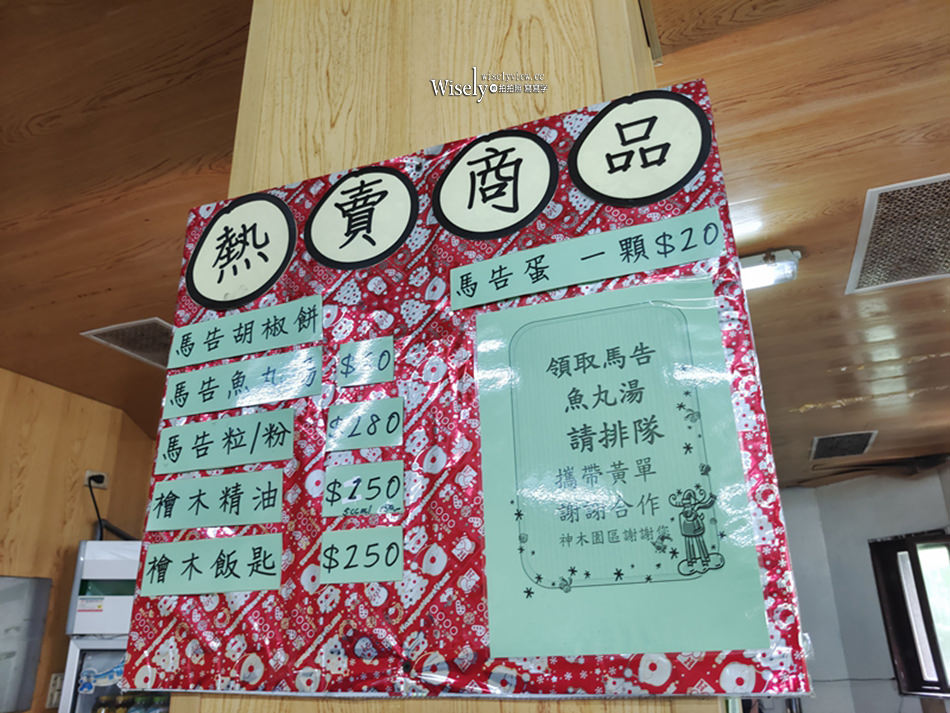 wiselyview.cc
Wisely 拍拍照 寫寫字
熱賣商品
馬告蛋 一顆 $20
馬告胡椒餅
馬告魚丸湯 $60
馬告粒/粉 $280
檜木精油 $250
檜木飯匙 $250
領取馬告
魚丸湯
請排隊
攜帶黃單
謝謝合作
神木園區謝謝您